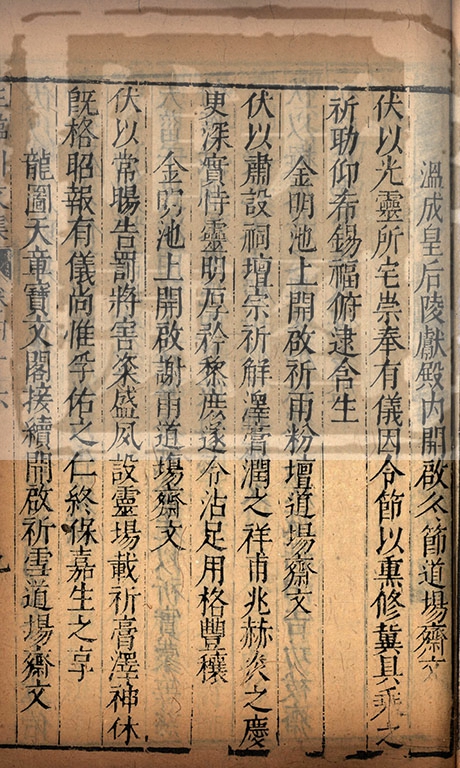 溫成皇后陵獻殿內開啟冬節道場齋文
伏以光靈所宅崇奉有儀因令節以熏修冀具乘之
祈助仰希錫福俯逮含生
金明池上開啟祈雨粉壇道場齋文
伏以肅設祠壇宗祈解澤膏潤之祥甫兆赫炎之慶
更深實恃靈明厚矜黎庶遂令沾足用格豐穰
金明池上開啟謝雨道場齋文
伏以常暘告罰將害粢盛夙設靈場載祈膏澤神休
旣格昭報有儀尚惟孚佑之仁終保嘉生之享
龍圖天章寶文閣接續開啟祈雪道場齋文